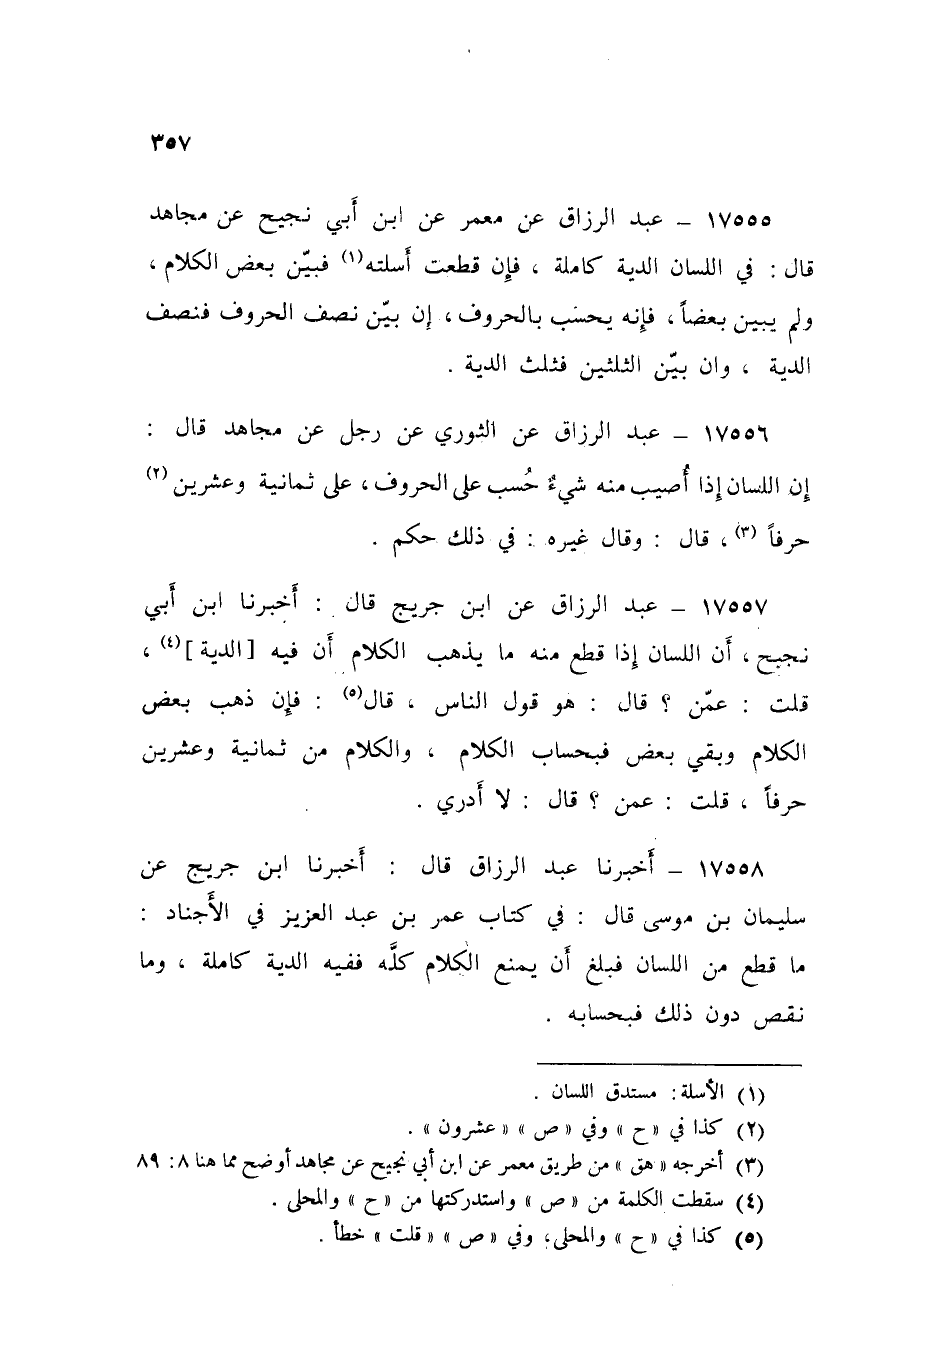 ٣٥٧
١٧٥٥٥ ـ عبد الرزاق عن معمر عن ابن أَبي نجيح عن مجاهد
قال : في اللسان الدية كاملة ، فإن قطعت أَسلته(١) فبيّن بعض الكلام ،
ولم يبين بعضاً ، فإنه يحسَب بالحروف ، إن بيّن نصف الحروف فنصف
الدية ، وان بيّن الثلثين فثلث الدية .
١٧٥٥٦ ـ عبد الرزاق عن الثوري عن رجل عن مجاهد قال :
إن اللسان إذا أُصيب منه شيءٌ حُسب على الحروف ، على ثمانية وعشرين (٢)
حرفاً (٣) ، قال : وقال غيره : في ذلك حكم .
١٧٥٥٧ ـ عبد الرزاق عن ابن جريج قال : أَخبرنا ابن أَبي
نجيح ، أَن اللسان إذا قطع منه ما يذهب الكلام أَن فيه [ الدية ] (٤) ،
قلت : عمّن ؟ قال : هو قول الناس ، قال(٥) : فإن ذهب بعض
الكلام وبقي بعض فبحساب الكلام ، والكلام من ثمانية وعشرين
حرفاً ، قلت : عمن ؟ قال : لا أَدري .
١٧٥٥٨ ـ أَخبرنا عبد الرزاق قال : أَخبرنا ابن جريج عن
سليمان بن موسى قال : في كتاب عمر بن عبد العزيز في الأَجناد :
ما قطع من اللسان فبلغ أَن يمنع الكلام كلَّه ففيه الدية كاملة ، وما
نقص دون ذلك فبحسابه .
(١) الأسلة : مستدق اللسان .
(٢) كذا في « ح » وفي « ص » « عشرون » .
(٣) أخرجه « هق » من طريق معمر عن ابن أبي نجيح عن مجاهد أوضح مما هنا ٨ : ٨٩
(٤) سقطت الكلمة من « ص » واستدركتها من « ح » والمحلى .
(٥) كذا في « ح » والمحلى ، وفي « ص » « قلت » خطأ .